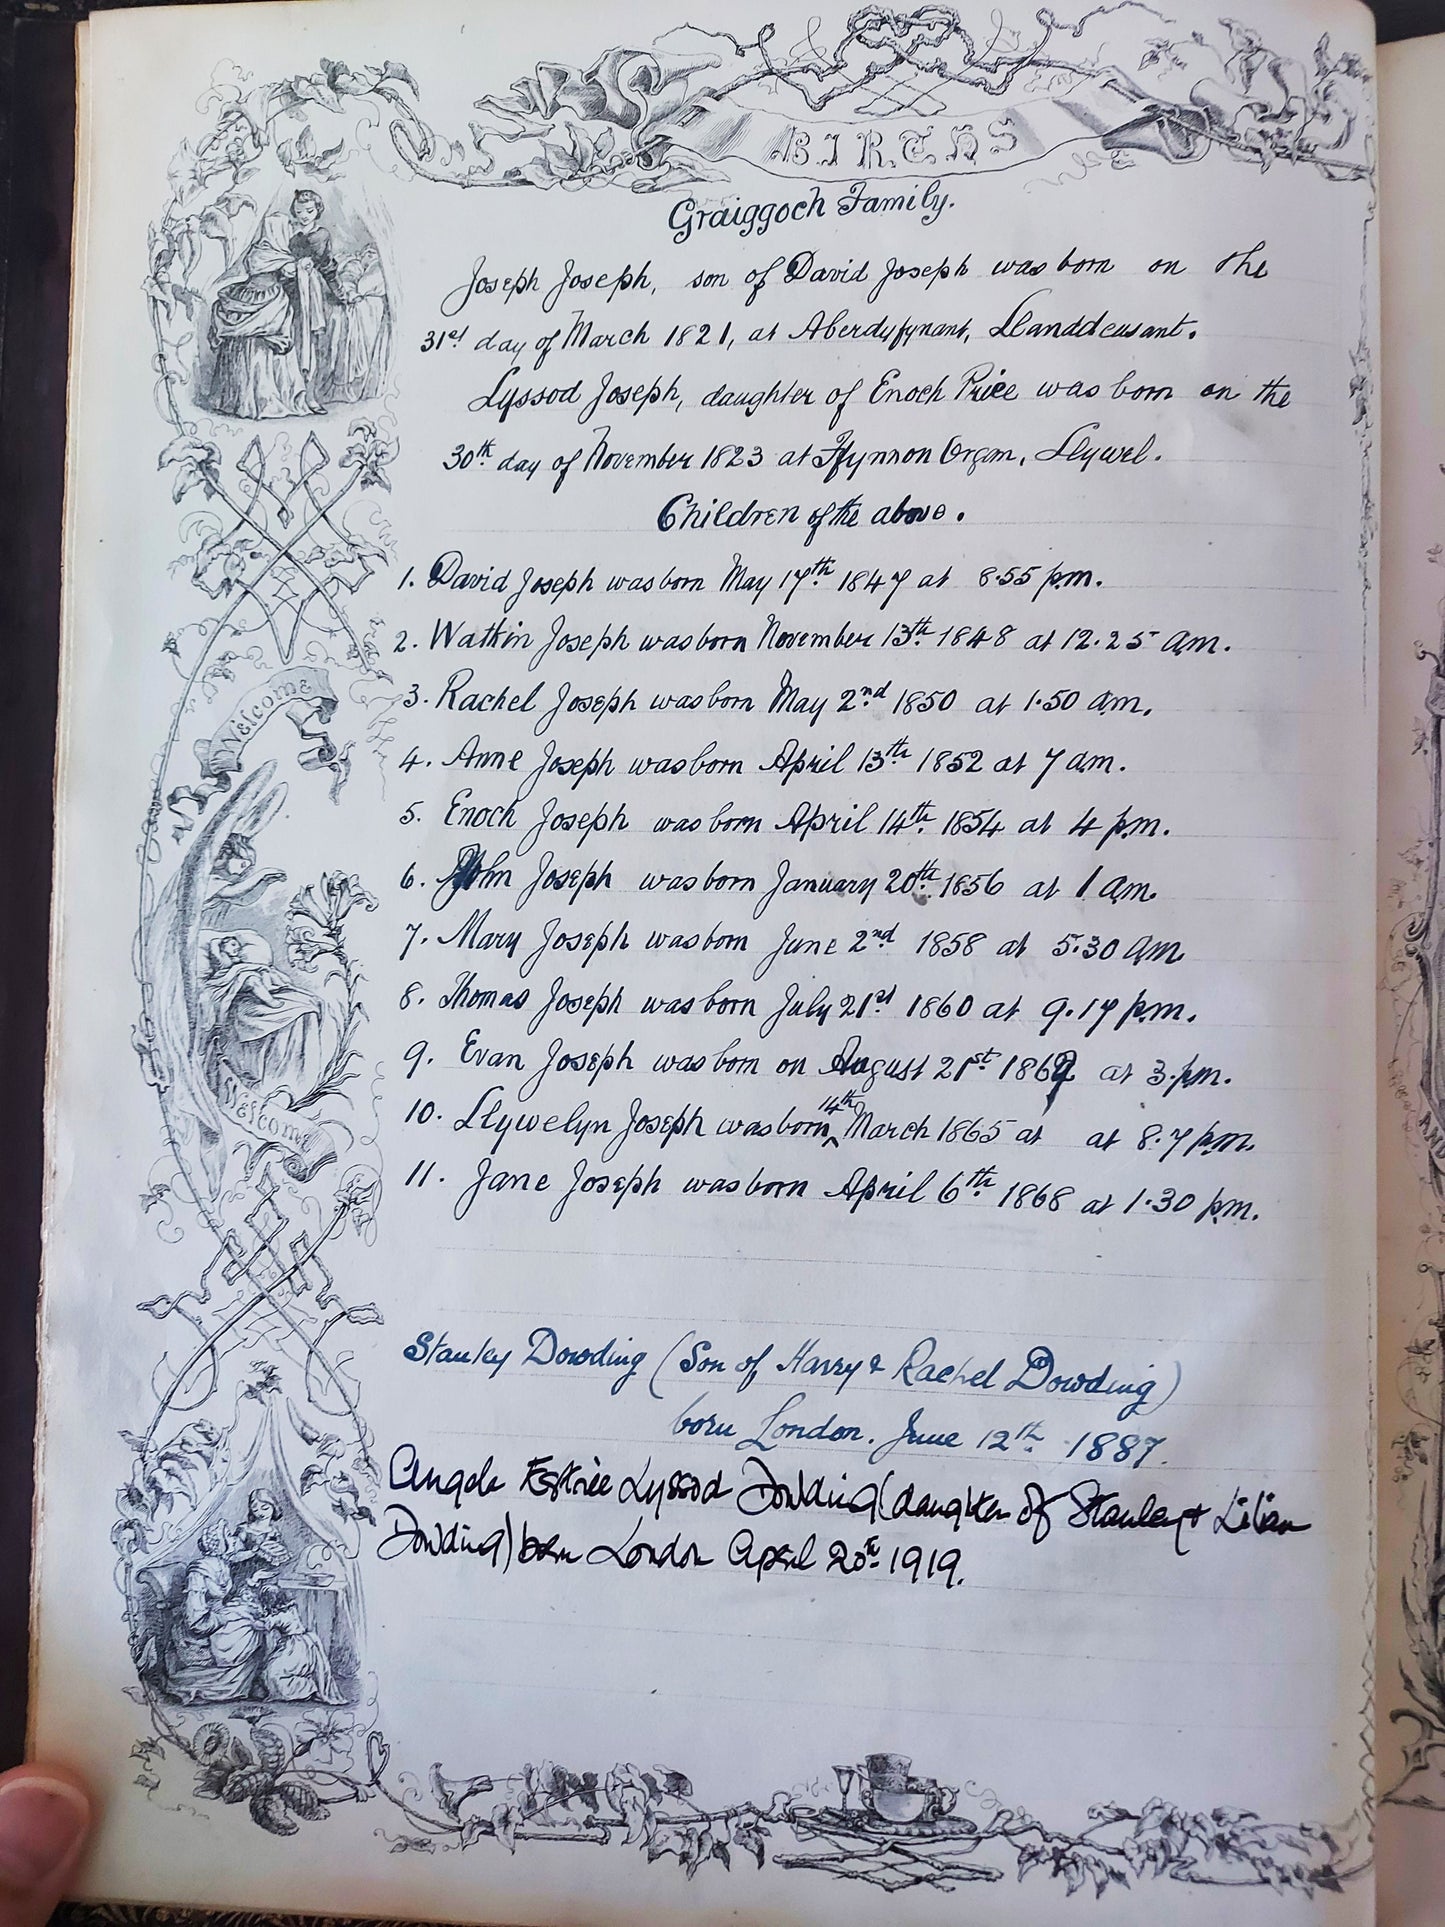 BIRTHS
Graiggoch Family.
Joseph Joseph, son of David Joseph was born on the
31st day of March 1821, at Aberdyfynant, Llanddeusant.
Lyssod Joseph, daughter of Enoch Price was born on the
30th day of November 1823 at Ffynnon Orgam, Llywel.
Children of the above.
1. David Joseph was born May 17th 1847 at 8.55 p.m.
2. Watkin Joseph was born November 13th 1848 at 12.25 am.
3. Rachel Joseph was born May 2nd 1850 at 1.50 am.
Welcome
4. Anne Joseph was born April 13th 1852 at 7 am.
5. Enoch Joseph was born April 14th 1854 at 4 p.m.
6. John Joseph was born January 20th 1856 at 1 am.
7. Mary Joseph was born June 2nd 1858 at 5.30 am.
8. Thomas Joseph was born July 21st 1860 at 9.17 p.m.
9. Evan Joseph was born on August 21st 1862 at 3.pm.
Welcome
10. Llywelyn Joseph was born 14th March 1865 at at 8.7 p.m.
11. Jane Joseph was born April 6th 1868 at 1.30 p.m.
Stanley Dowding (Son of Harry & Rachel Dowding)
born London. June 12th 1887.
Angela Estrée Lyssod Dowding (daughter of Stanley + Lilian
Dowding) born London April 20th 1919.